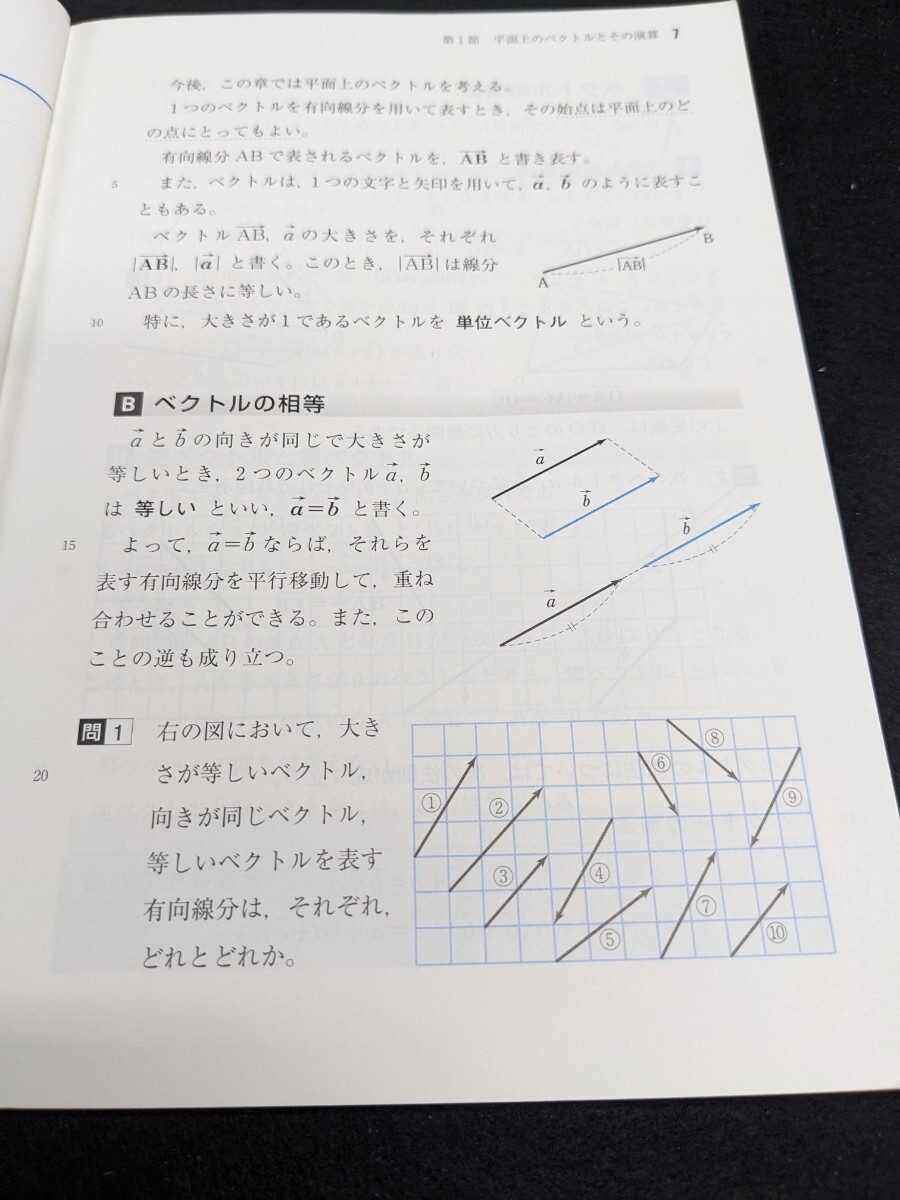 第1節 平面上のベクトルとその演算 7
今後，この章では平面上のベクトルを考える。
1つのベクトルを有向線分を用いて表すとき，その始点は平面上のど
の点にとってもよい。
有向線分 AB で表されるベクトルを，$\overrightarrow{AB}$ と書き表す。
5 また，ベクトルは，1つの文字と矢印を用いて，$\vec{a}$，$\vec{b}$ のように表すこ
ともある。
ベクトル $\overrightarrow{AB}$，$\vec{a}$ の大きさを，それぞれ
$|\overrightarrow{AB}|$，$|\vec{a}|$ と書く。このとき，$|\overrightarrow{AB}|$ は線分
AB の長さに等しい。
A $|\overrightarrow{AB}|$ B
10 特に，大きさが1であるベクトルを 単位ベクトル という。
B ベクトルの相等
$\vec{a}$ と $\vec{b}$ の向きが同じで大きさが
等しいとき，2つのベクトル $\vec{a}$，$\vec{b}$
は 等しい といい，$\vec{a}=\vec{b}$ と書く。
15 よって，$\vec{a}=\vec{b}$ ならば，それらを
表す有向線分を平行移動して，重ね
合わせることができる。また，この
ことの逆も成り立つ。
$\vec{a}$
$\vec{b}$
$\vec{b}$
$\vec{a}$
問1 右の図において，大き
20 さが等しいベクトル，
向きが同じベクトル，
等しいベクトルを表す
有向線分は，それぞれ，
どれとどれか。
① ② ③ ④ ⑤ ⑥ ⑦ ⑧ ⑨ ⑩